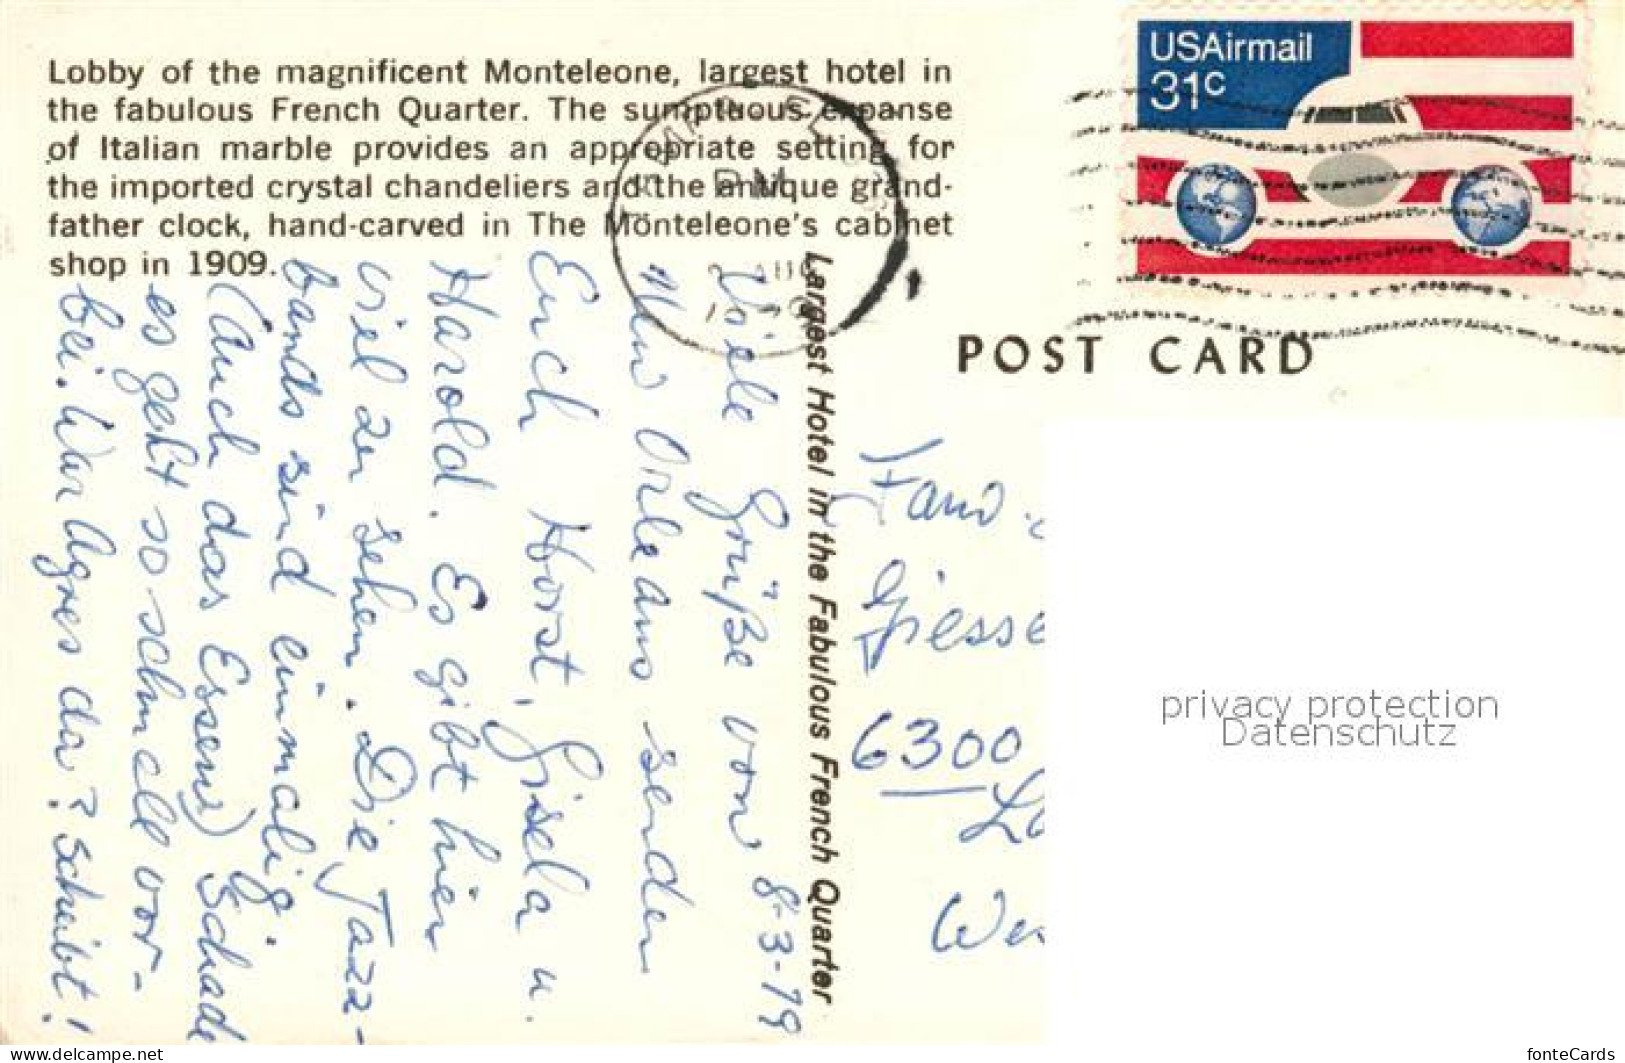 Lobby of the magnificent Monteleone, largest hotel in
the fabulous French Quarter. The sumptuous expanse
of Italian marble provides an appropriate setting for
the imported crystal chandeliers and the antique grand-
father clock, hand-carved in The Monteleone's cabinet
shop in 1909.
USAirmail
31c
PM
POST CARD
Largest Hotel in the Fabulous French Quarter
8-3-79
Viele Grüße von
New Orleans senden
Euch Horst, Gisela u.
Harold. Es gibt hier
viel zu sehen. Die Jazz-
bands sind einmalig.
(Auch das Essen) Schade
es geht so schnell vor-
bei. War Agnes da? Schreibt!
Fam.
Giesse
6300
We
privacy protection
Datenschutz
https://www.delcampe.net
fonteCards